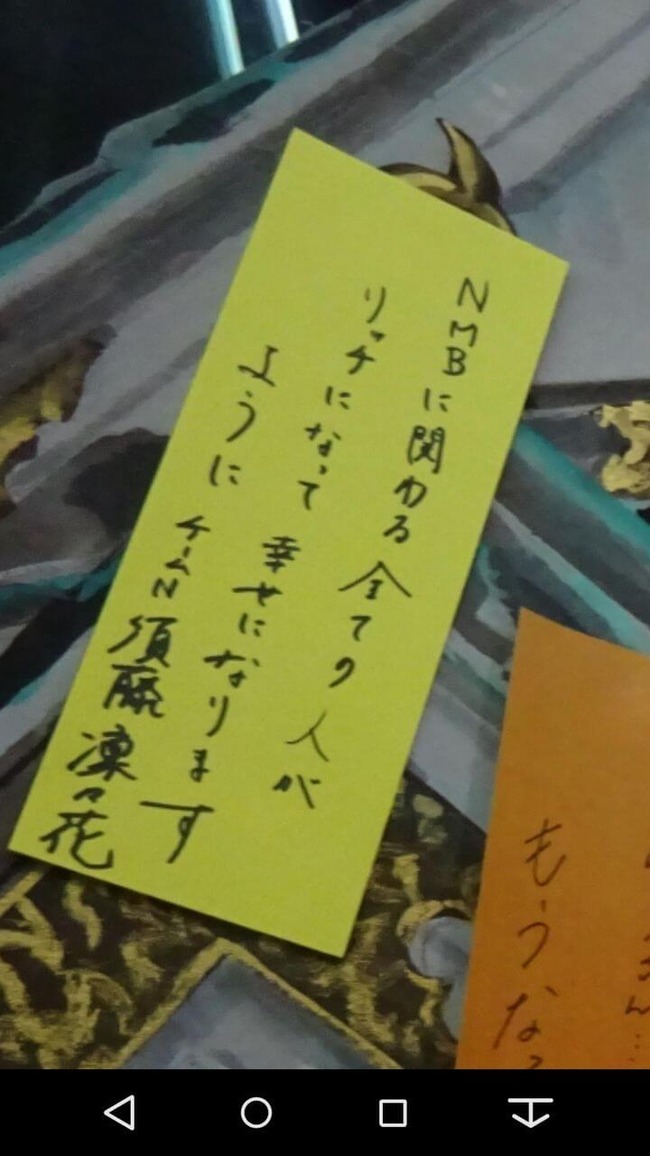 NMBに関わる全ての人が
リッチになって幸せになります
ように
チームN須藤凜々花
もうな